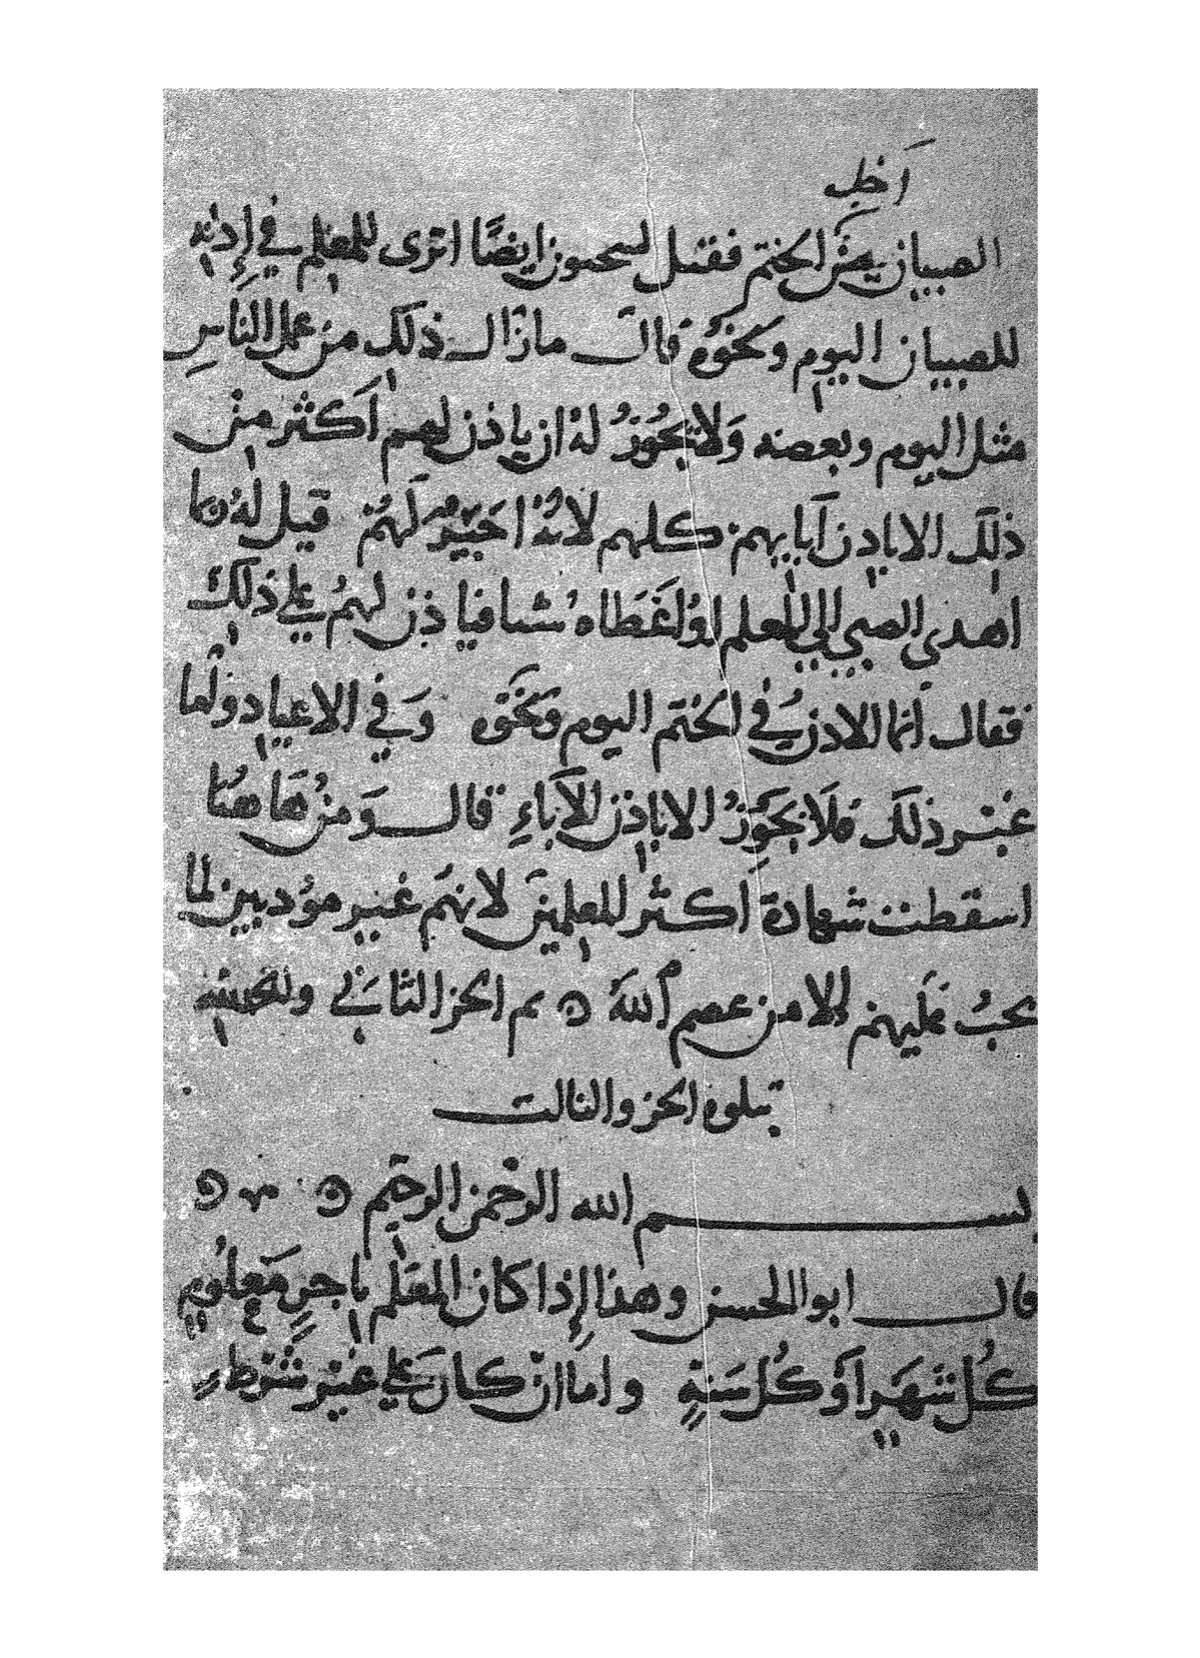 أجل
الصبيان بعض الختم فقيل لسحنون ايضًا اترى للمعلم في إذنه
للصبيان اليوم ونحوَه قال ما زال ذلك من عمل الناسِ
مثل اليوم وبعضه وَلا يجُوزُ لهُ ان ياذن لهم أكثر من
ذلك الا باذن آبايهم كلهم لانهُ اجيرٌ لَهُم قيل لهُ ربما
اهدى الصبي الى المعلم اوْ أعْطَاه شيا فياذن لهمُ على ذلك
فقال انما الاذن في الختم اليوم ونحوَه وَفي الاعياد وأما
غير ذلك فلَا يجوزُ الا باذن الآباءِ قال وَمن هَاهنا
اسقطت شهادة أكثر المعلمينَ لانهم غير مؤديين لما
يجبُ عليهم الا من عصم اللهُ تم الجز الثاني
يتلوه الجزو الثالث
بسم الله الرحمن الرحيم
قال ابو الحسن وهذا إذا كان المعلم باجرٍ مَعلُومٍ
كُل شهرٍ أوْ كُل سَنةٍ واما ان كان على غير شرطٍ